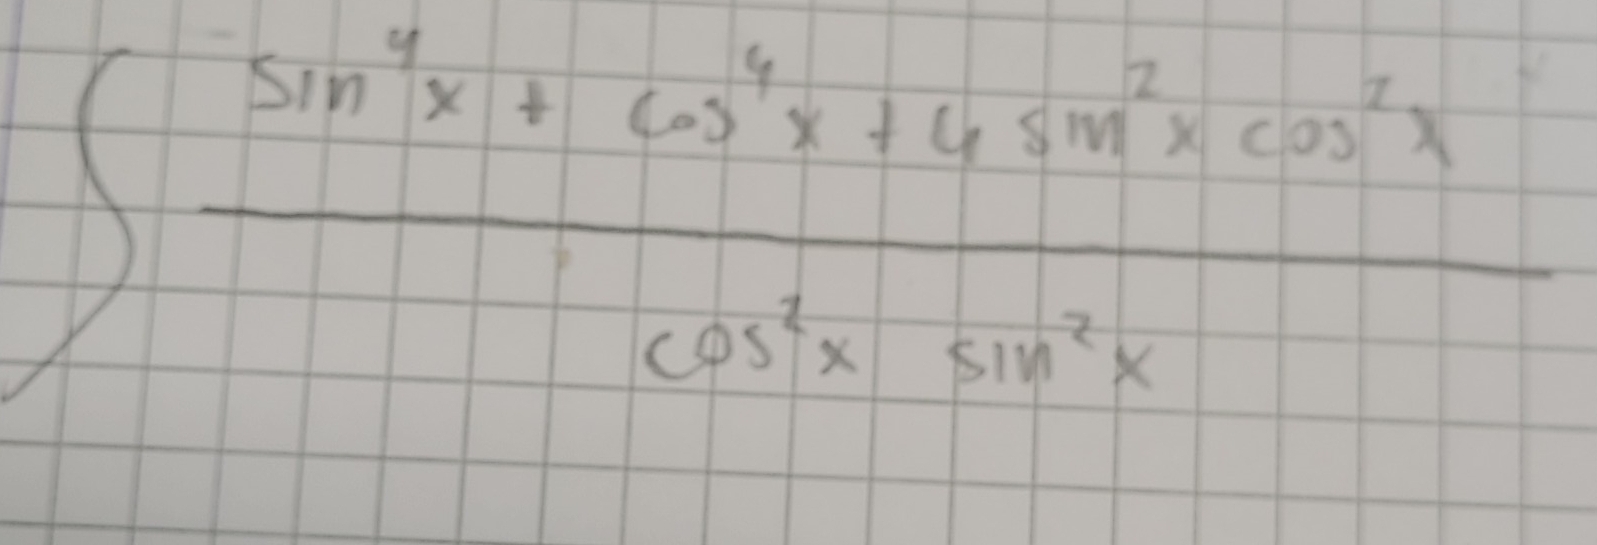 ∫ sin⁴x + cos⁴x + 4 sin²x cos²x
cos²x sin²x